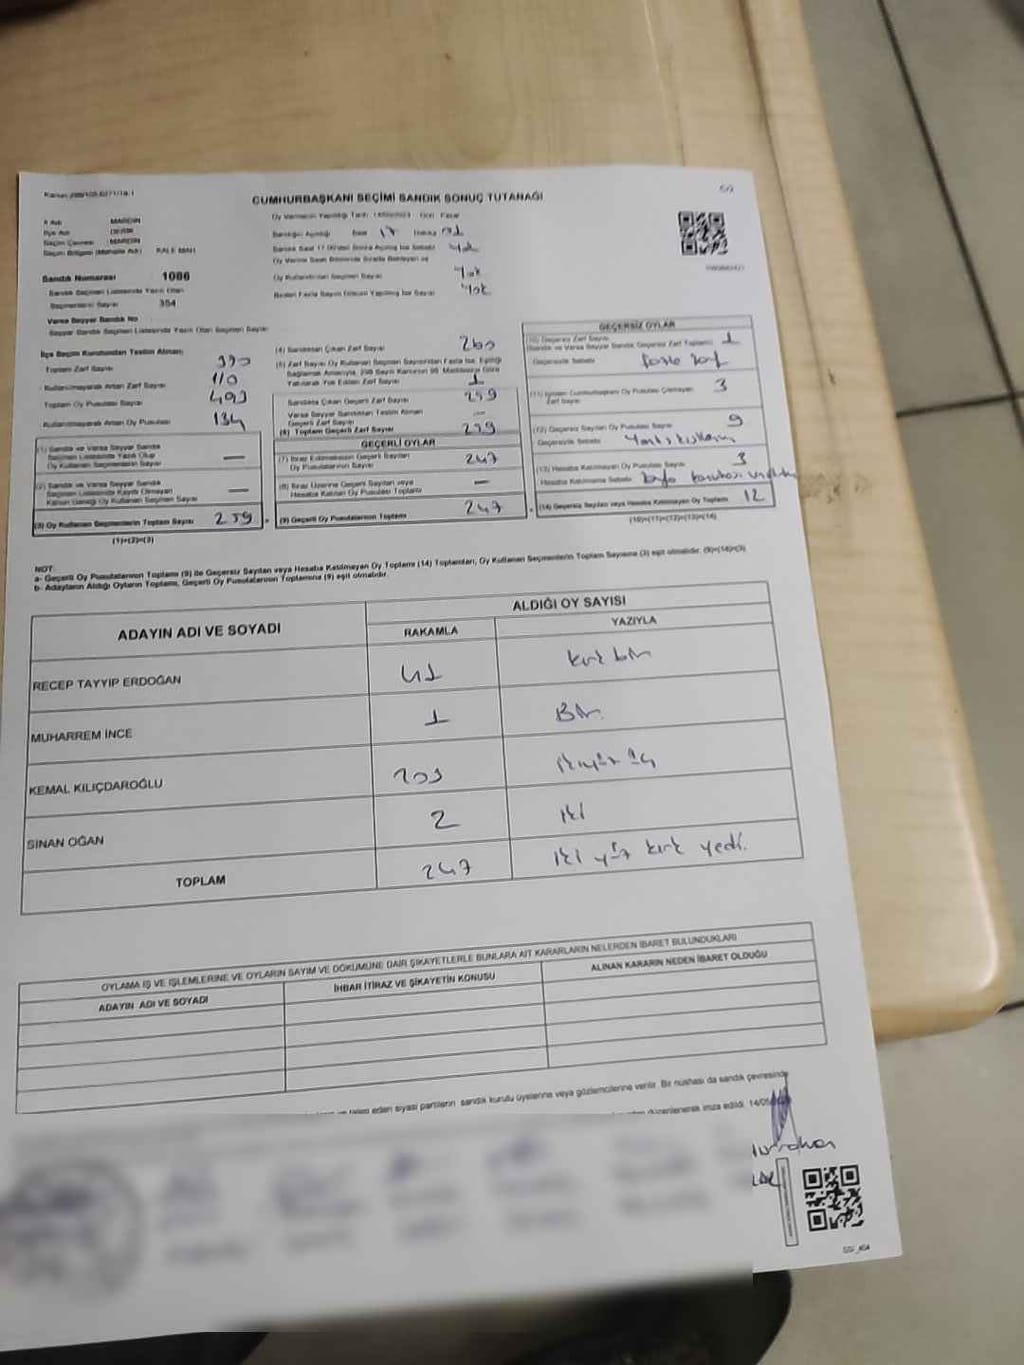 CUMHURBAŞKANI SEÇİMİ SANDIK SONUÇ TUTANAĞI
İl Adı MARDİN
İlçe Adı
Seçim Çevresi MARDİN
Seçim Bölgesi (Mahalle Adı) KALE MAH
Sandık Numarası 1086
Sandık Seçmen Listesinde Yazılı Olan
Seçmenlerin Sayısı 354
Varsa Seyyar Sandık No
Seyyar Sandık Seçmen Listesinde Yazılı Olan Seçmen Sayısı
Yok
Oy Kullandırılan Seçmen Sayısı Yok
Yok
İlçe Seçim Kurulundan Teslim Alınan
Toplam Zarf Sayısı 390
Kullanılmayarak Artan Zarf Sayısı 110
Toplam Oy Pusulası Sayısı
Kullanılmayarak Artan Oy Pusulası 134
(1) Sandık ve Varsa Seyyar Sandık
Seçmen Listesinde Yazılı Olup
Oy Kullanan Seçmenlerin Sayısı —
(2) Sandık ve Varsa Seyyar Sandık
Seçmen Listesinde Kayıtlı Olmayan
Kanun Gereği Oy Kullanan Seçmen Sayısı —
(3) Oy Kullanan Seçmenlerin Toplam Sayısı 259
(1)+(2)=(3)
(4) Sandıktan Çıkan Zarf Sayısı 260
(5) Zarf Sayısı Oy Kullanan Seçmen Sayısından Fazla İse, Eşitliği
Sağlamak Amacıyla, 298 Sayılı Kanunun 98. Maddesine Göre
Yakılarak Yok Edilen Zarf Sayısı 1
Sandıkta Çıkan Geçerli Zarf Sayısı 259
Varsa Seyyar Sandıktan Teslim Alınan
Geçerli Zarf Sayısı —
(6) Toplam Geçerli Zarf Sayısı 259
GEÇERLİ OYLAR
(7) İtiraz Edilmeksizin Geçerli Sayılan
Oy Pusulalarının Sayısı 247
(8) İtiraz Üzerine Geçerli Sayılan veya
Hesaba Katılan Oy Pusulası Toplamı —
(9) Geçerli Oy Pusulalarının Toplamı 247
GEÇERSİZ OYLAR
(10) Geçersiz Zarf Sayısı
(Sandık ve Varsa Seyyar Sandık Geçersiz Zarf Toplamı) 1
Geçersizlik Sebebi fazla zarf
(11) İçinden Cumhurbaşkanı Oy Pusulası Çıkmayan
Zarf Sayısı 3
(12) Geçersiz Sayılan Oy Pusulası Sayısı 9
Geçersizlik Sebebi Yanlış kullanım
(13) Hesaba Katılmayan Oy Pusulası Sayısı 3
Hesaba Katılmama Sebebi
(14) Geçersiz Sayılan veya Hesaba Katılmayan Oy Toplamı 12
(10)+(11)+(12)+(13)=(14)
NOT:
a- Geçerli Oy Pusulalarının Toplamı (9) ile Geçersiz Sayılan veya Hesaba Katılmayan Oy Toplamı (14) Toplamları, Oy Kullanan Seçmenlerin Toplam Sayısına (3) eşit olmalıdır. (9)+(14)=(3)
b- Adayların Aldığı Oyların Toplamı, Geçerli Oy Pusulalarının Toplamına (9) eşit olmalıdır.
ADAYIN ADI VE SOYADI
ALDIĞI OY SAYISI
RAKAMLA YAZIYLA
RECEP TAYYIP ERDOĞAN 41 kırk bir
MUHARREM İNCE 1 Bir
KEMAL KILIÇDAROĞLU 203 ikiyüz üç
SİNAN OĞAN 2 iki
TOPLAM 247 iki yüz kırk yedi.
OYLAMA İŞ VE İŞLEMLERİNE VE OYLARIN SAYIM VE DÖKÜMÜNE DAİR ŞİKAYETLERLE BUNLARA AİT KARARLARIN NELERDEN İBARET BULUNDUKLARI
ADAYIN ADI VE SOYADI
İHBAR İTİRAZ VE ŞİKAYETİN KONUSU
ALINAN KARARIN NEDEN İBARET OLDUĞU
talep eden siyasi partilerin sandık kurulu üyelerine veya gözlemcilerine verilir. Bir nüshası da sandık çevresinde
düzenlenerek imza edildi.